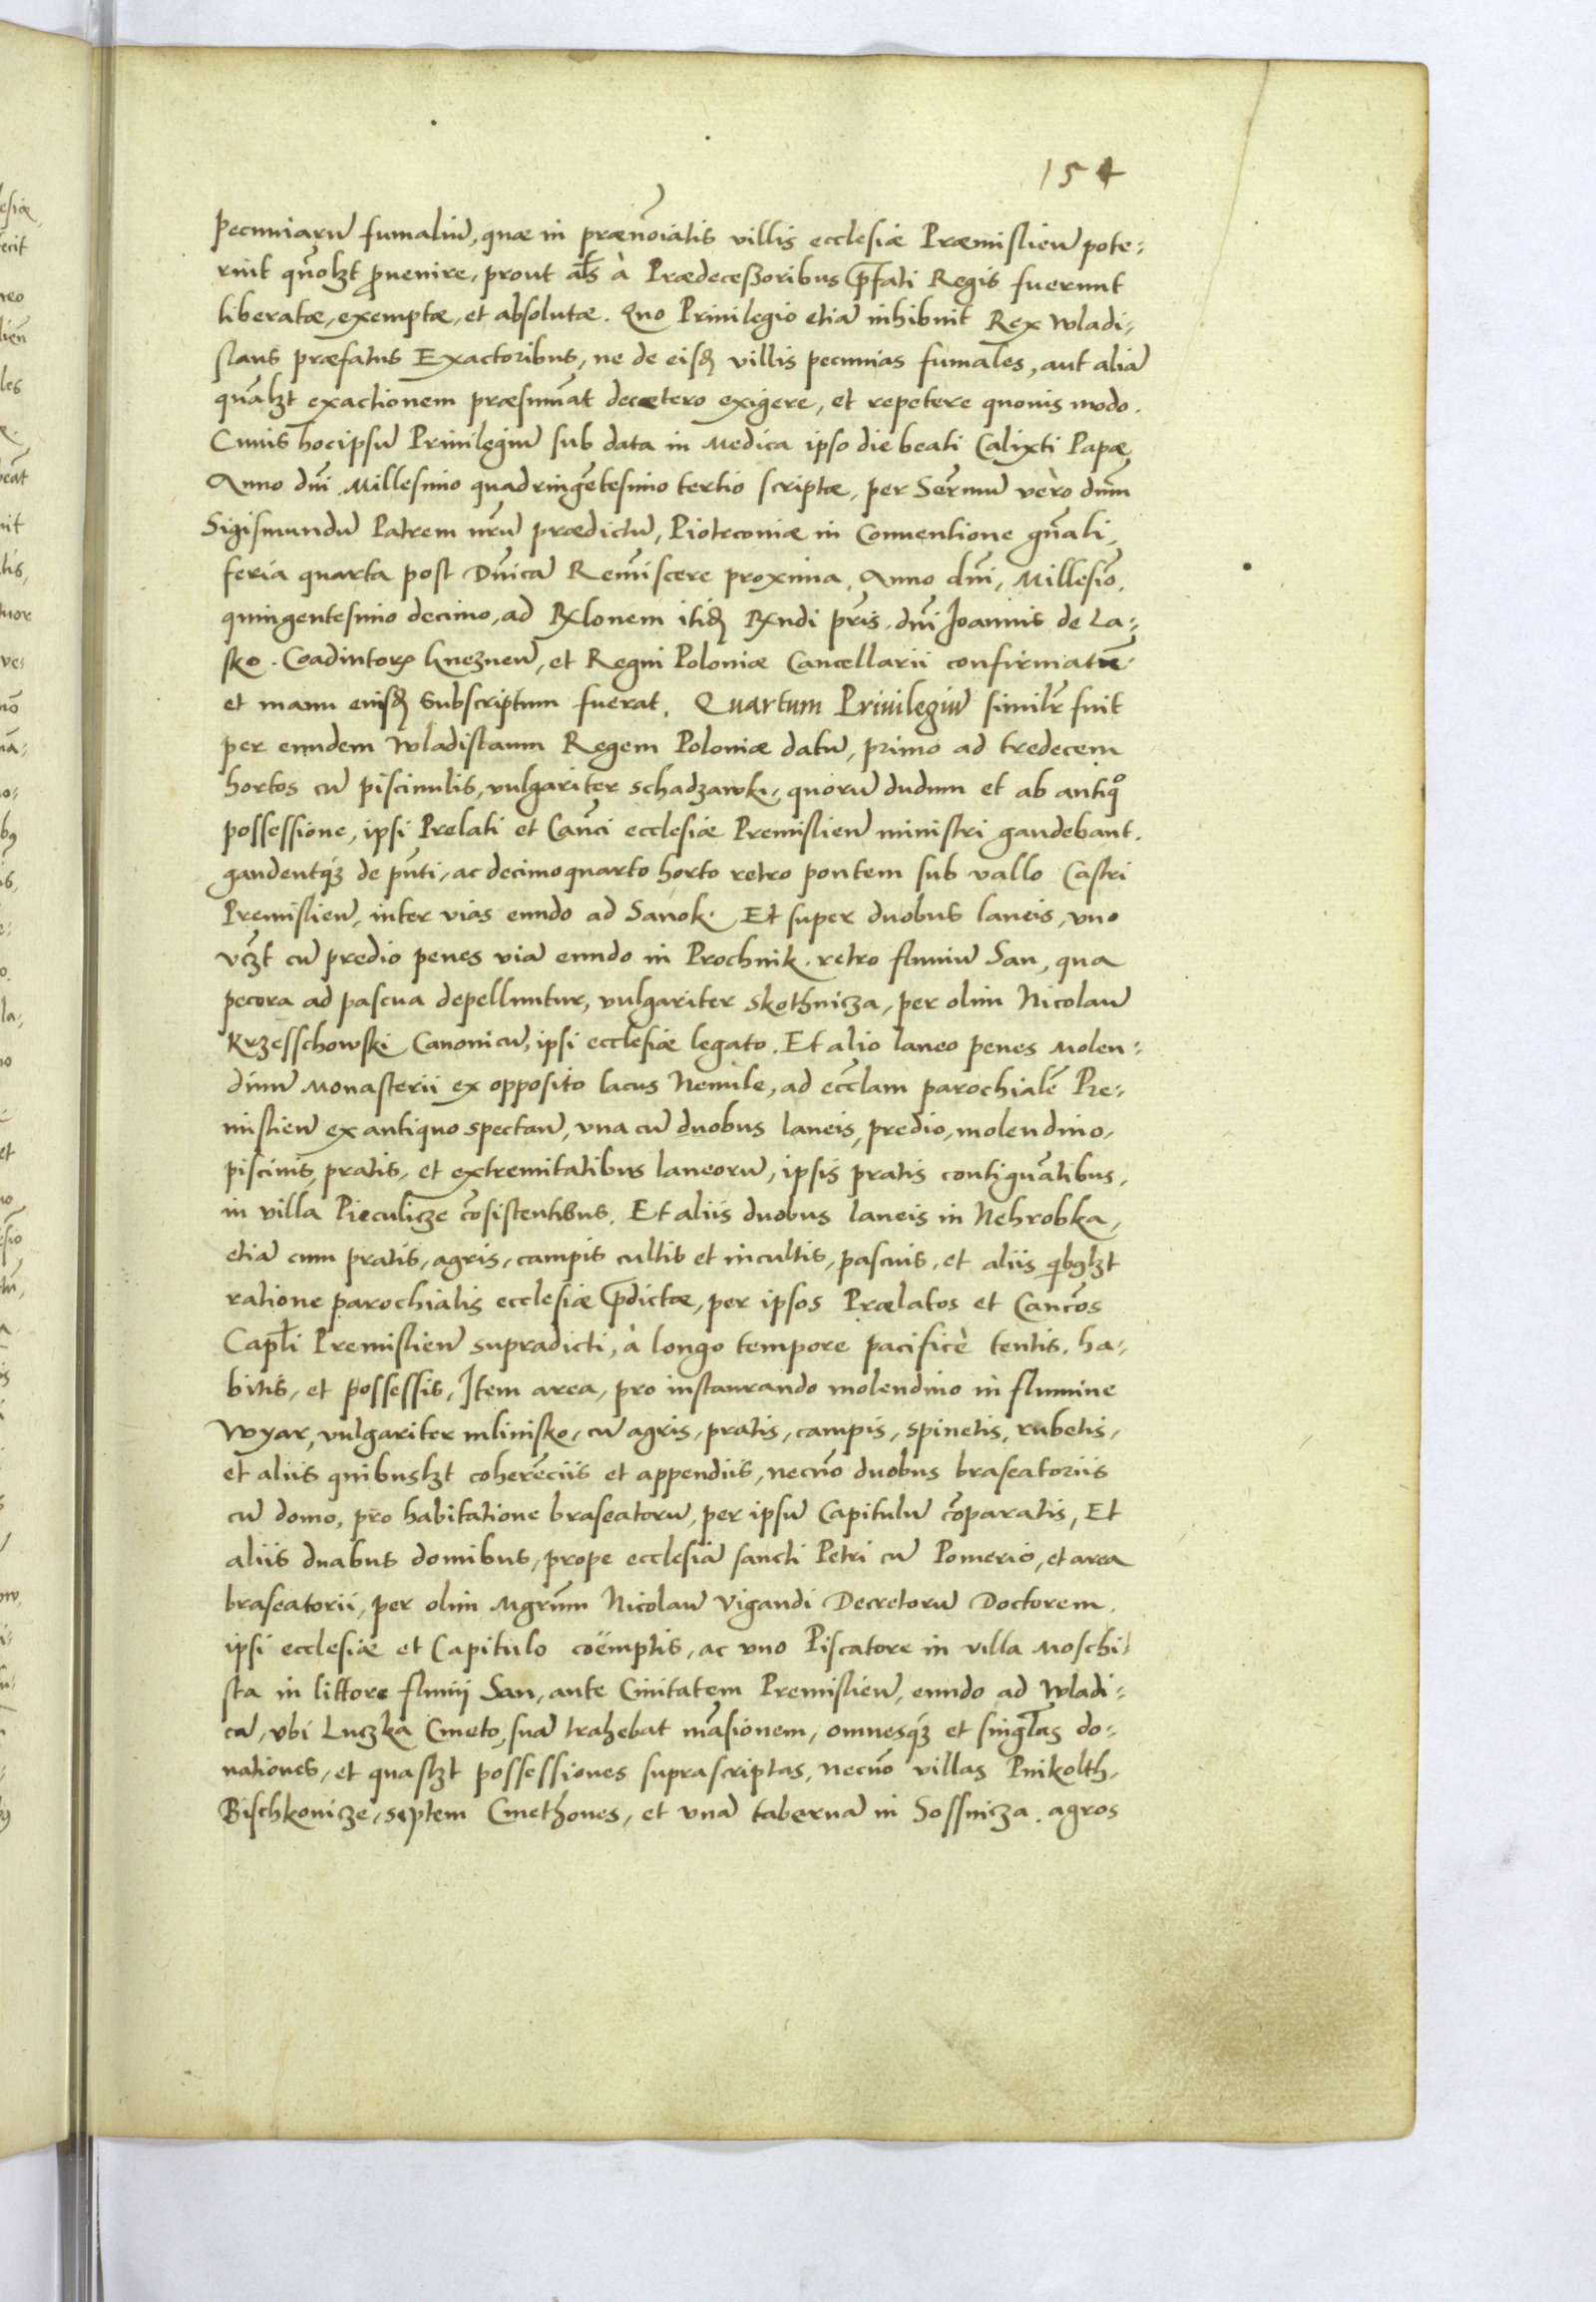 154
pecuniarū fumaliū, quæ in prænoīatis villis ecclesiæ Præmislieñ pote:
rint quōlzt ꝓuenire, prout al̄s à Prædecessoribus p̄fati Regis fuerunt
liberatæ, exemptæ, et absolutæ. Quo Priuilegio etiā inhibuit Rex Wladi:
slaus præfatus Exactoribus, ne de eisdȝ villis pecunias fumales, aut aliā
quālzt exactionem præsumāt decætero exigere, et repetere quouis modo.
Cuius hocipsū Priuilegiū sub data in Medica ipso die beati Calixti Papæ
Anno dn̄i Millesimo quadringētesimo tertio scriptæ, per Sermū vèro dnm̄
Sigismundū Patrem nr̄ū prædictū, Pioteconiæ in Conuentione gn̄ali,
feria quarta post Dn̄icā Remīscere proxima, Anno dn̄i, Millesīo
quingentesimo decimo, ad Rx̄lonem itidȝ Rx̄ndi pr̄is, dn̄i Joannis de La:
sko. Coadiutorꝭ Gnezneñ, et Regni Poloniæ Cancellarii confirmatū
et manu euisdȝ Subscriptum fuerat. Quartum Priuilegiū similr̄ fuit
per eundem Wladislaum Regem Poloniæ datū, primo ad tredecem
hortos cū piscinulis, vulgariter schadzawki, quorū dudum et ab antiqº
possessione, ipsi Prelati et Can̄ci ecclesiæ Premislieñ ministri gaudebant.
gaudentqȝ de pn̄ti, ac decimoquarto horto retro pontem sub vallo Castri
Premislieñ, inter vias eundo ad Sanok. Et super duobus laneis, vno
vczt cū predio penes viā eundo in Prochnik. retro fluuiū San, qua
pecora ad pascua depelluntur, vulgariter Skothnicza, per olim Nicolaū
Krzesschowski Canonicū, ipsi ecclesiæ legato. Et alio laneo penes Molen:
dinū Monasterii ex opposito lacus Nemile, ad eccl̄am parochialē Pre:
mislieñ ex antiquo spectañ, vna cū duobus laneis, predio, molendino,
piscinis, pratis, et extremitatibus laneorū, ipsis pratis contiguātibus,
in villa Pieculicze cōsistentibus. Et aliis duobus laneis in Nehrobka,
etiā cum pratis, agris, campis cultis et incultis, pascuis, et aliis qibꝯlzt
ratione parochialis ecclesiæ p̄dictæ, per ipsos Prælatos et Can̄cos
Capl̄i Premislieñ supradicti, à longo tempore pacificè tentis, ha:
bitis, et possessis, Item area, pro instaurando molendino in flumine
Wyar, vulgariter mlinisko, cū agris, pratis, campis, spinetis, rubetis,
et aliis quibuslzt coherēciis et appendiis, necn̄o duobus braseatoriis
cū domo, pro habitatione braseatorū, per ipsū Capitulū cōparatis, Et
aliis duabus domibus, prope ecclesiā sancti Petri cū Pomerio, et area
braseatorii, per olim Mgrum̄ Nicolaū Vigandi Decretorū Doctorem,
ipsi ecclesiæ et Capitulo coëmptis, ac vno Piscatore in villa Moschi:
ska in littore fluuij San, ante Ciuitatem Premislieñ, eundo ad Wladi:
cā, vbi Luczka Cmeto, suā trahebat māsionem, omnesqȝ et singl̄as do:
nationes, et quaslzt possessiones suprascriptas, necn̄o villas Pnikolth,
Bischkonicze, septem Cmethones, et vnā tabernā in Sossnicza. agros